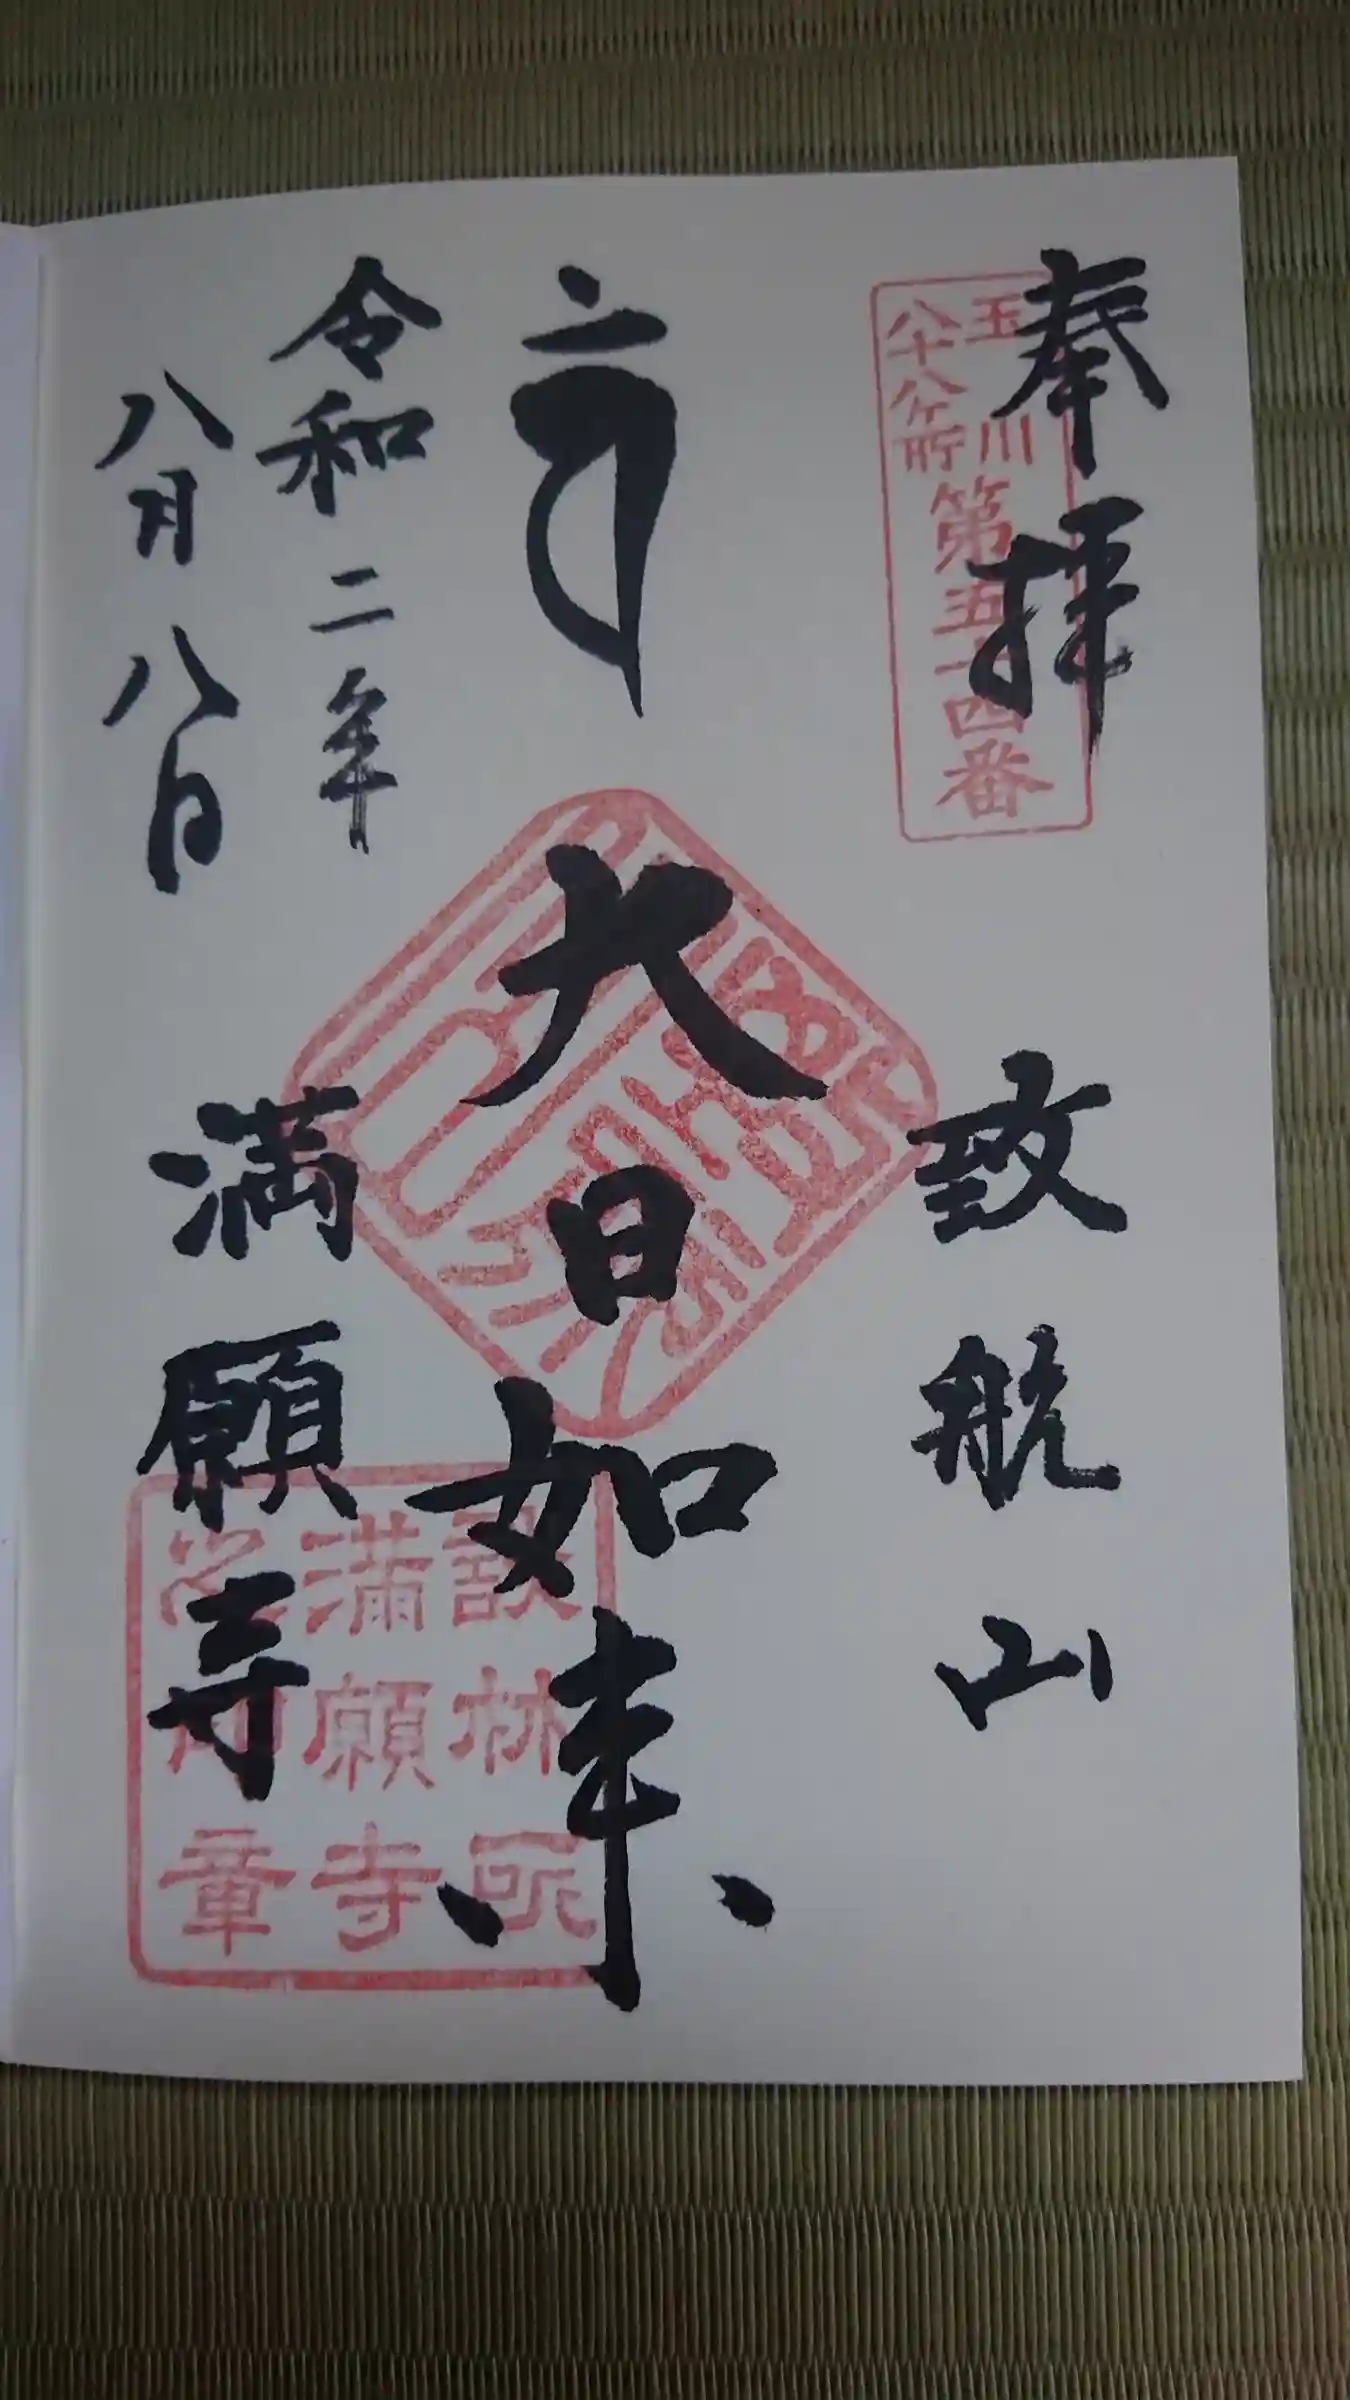 奉拝
玉川
八十八ケ所
第五十四番
致航山
大日如来
令和二年
八月八日
満願寺
談林所
満願寺
章